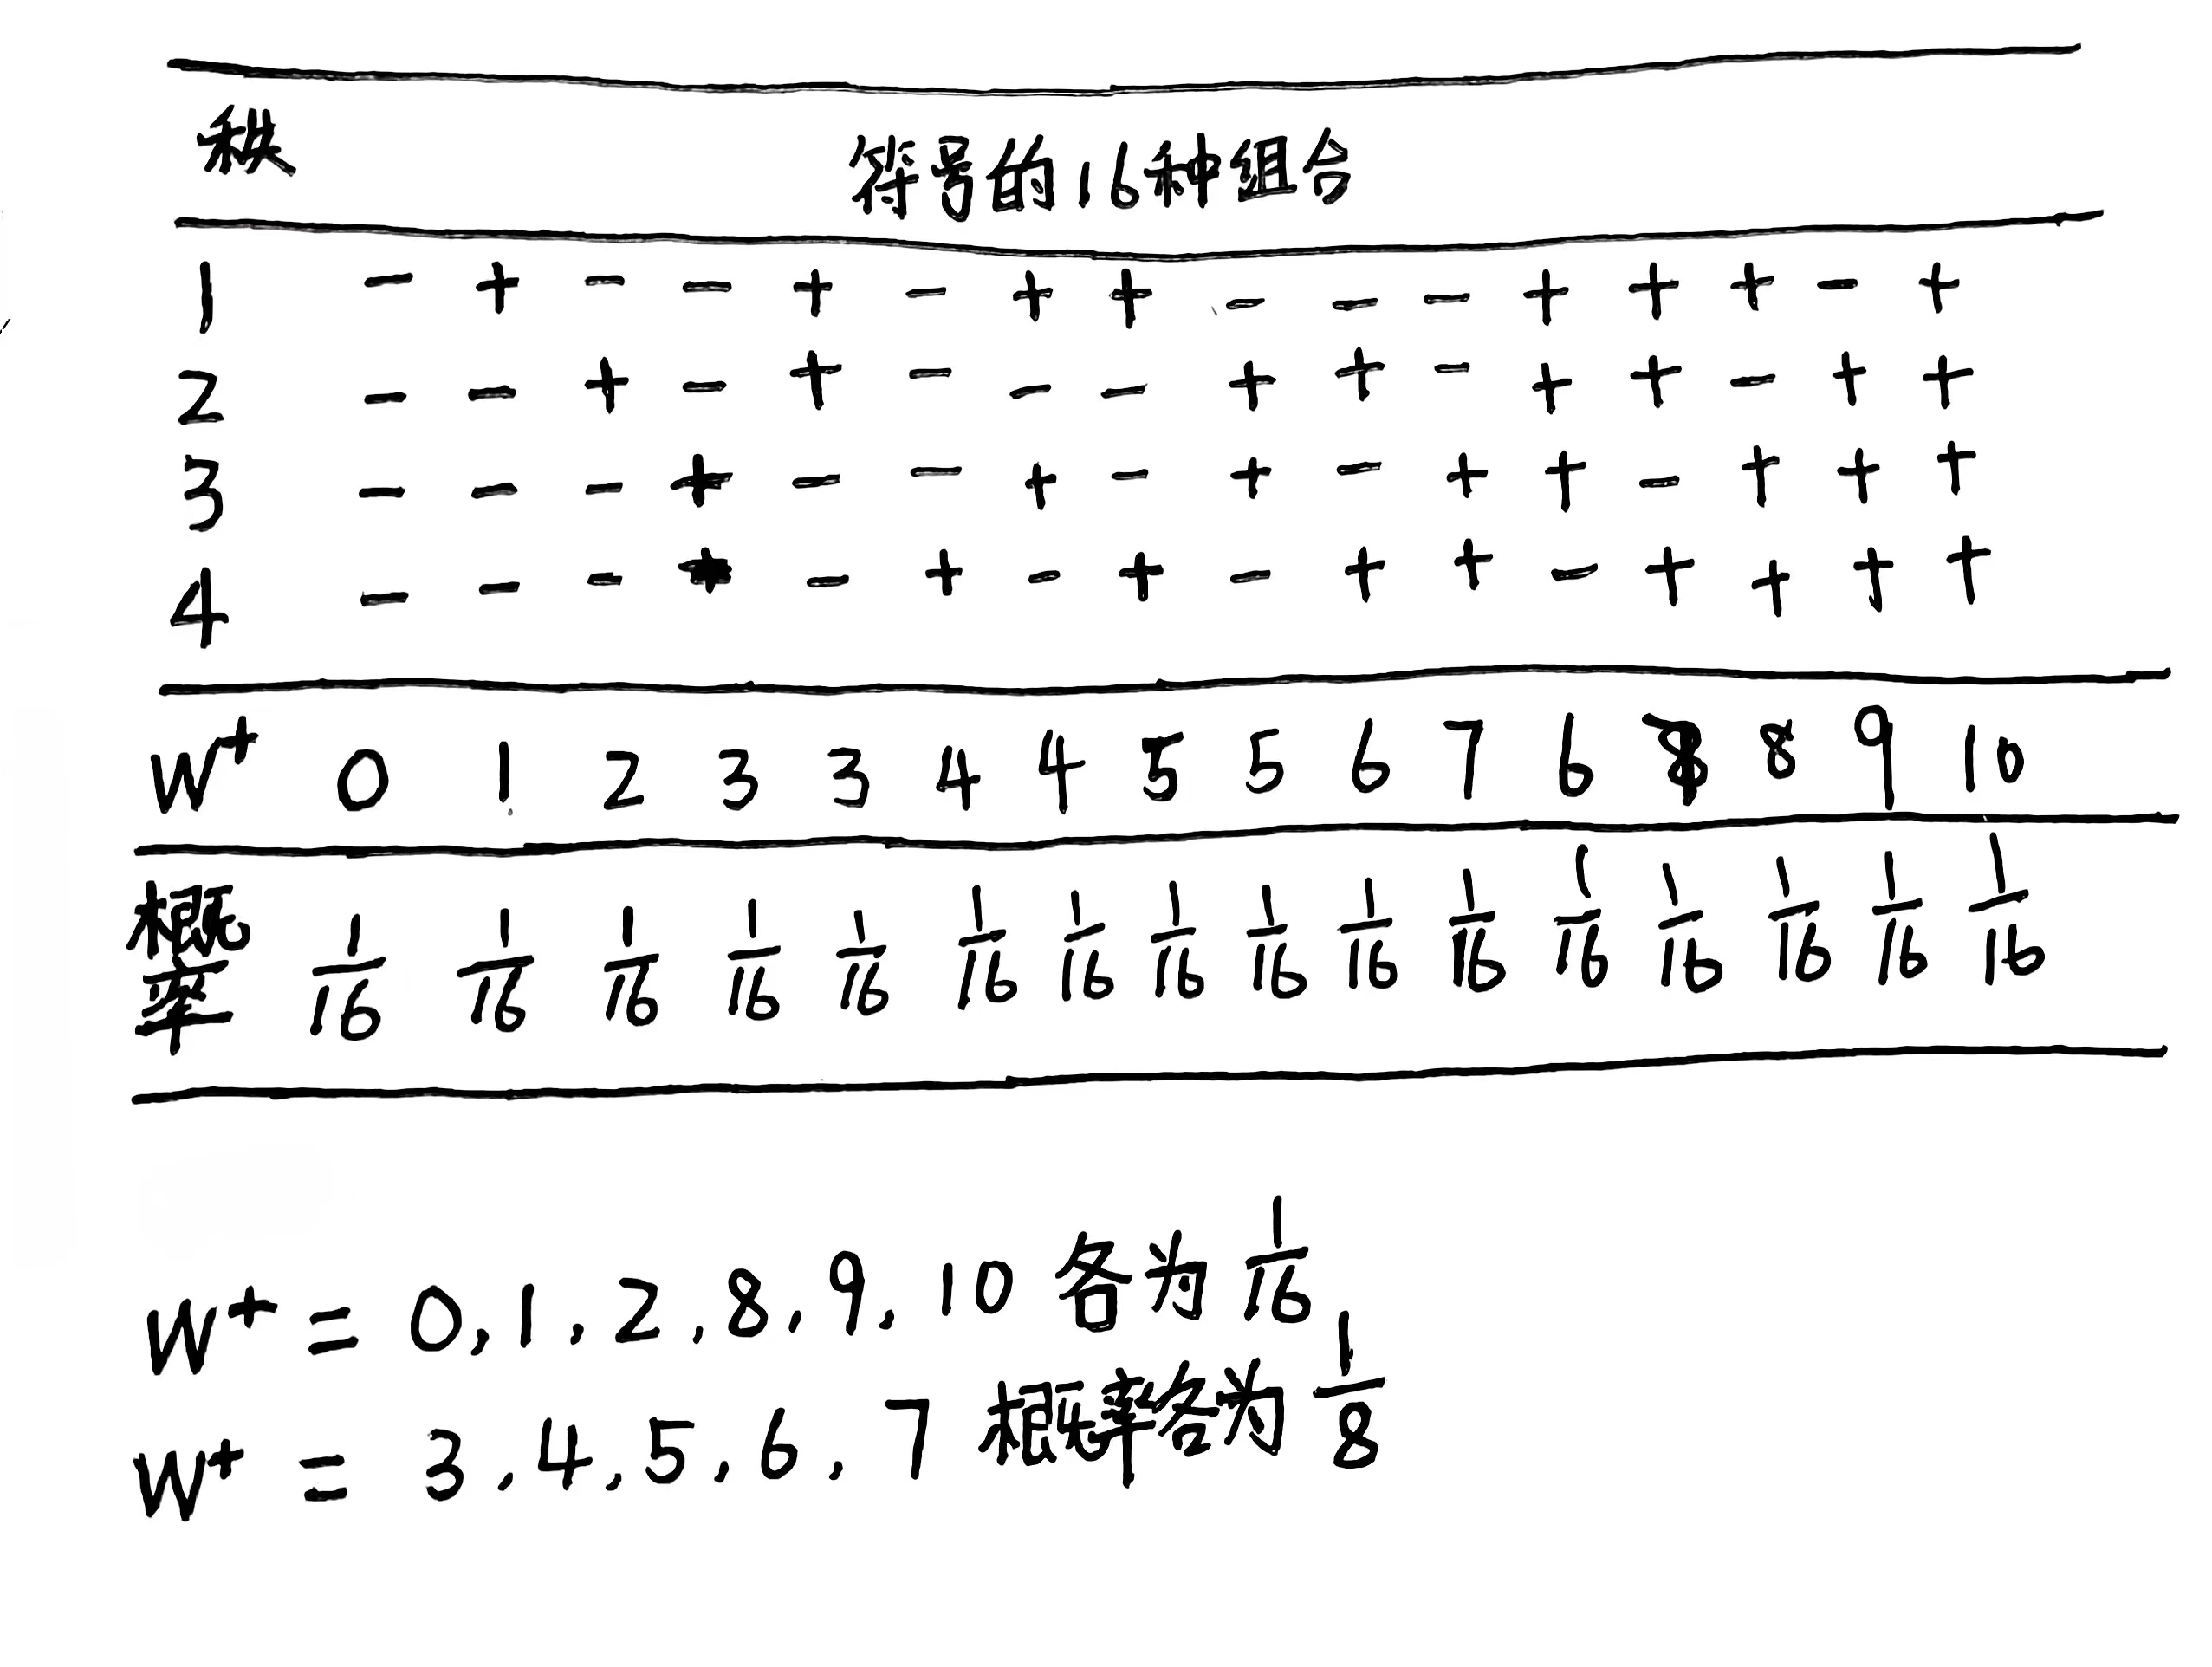 秩 符号的16种组合
1 - + - - + - + + - - - + + + - +
2 - - + - + - - - + + - + + - + +
3 - - - + - - + - + - + + - + + +
4 - - - - + - + - + + - + + + +
W⁺ 0 1 2 3 3 4 4 5 5 6 7 6 8 9 10
概率 1/16 1/16 1/16 1/16 1/16 1/16 1/16 1/16 1/16 1/16 1/16 1/16 1/16 1/16 1/16 1/16
W⁺ = 0, 1, 2, 8, 9, 10 各为 1/16
W⁺ = 3, 4, 5, 6, 7 概率各为 1/8